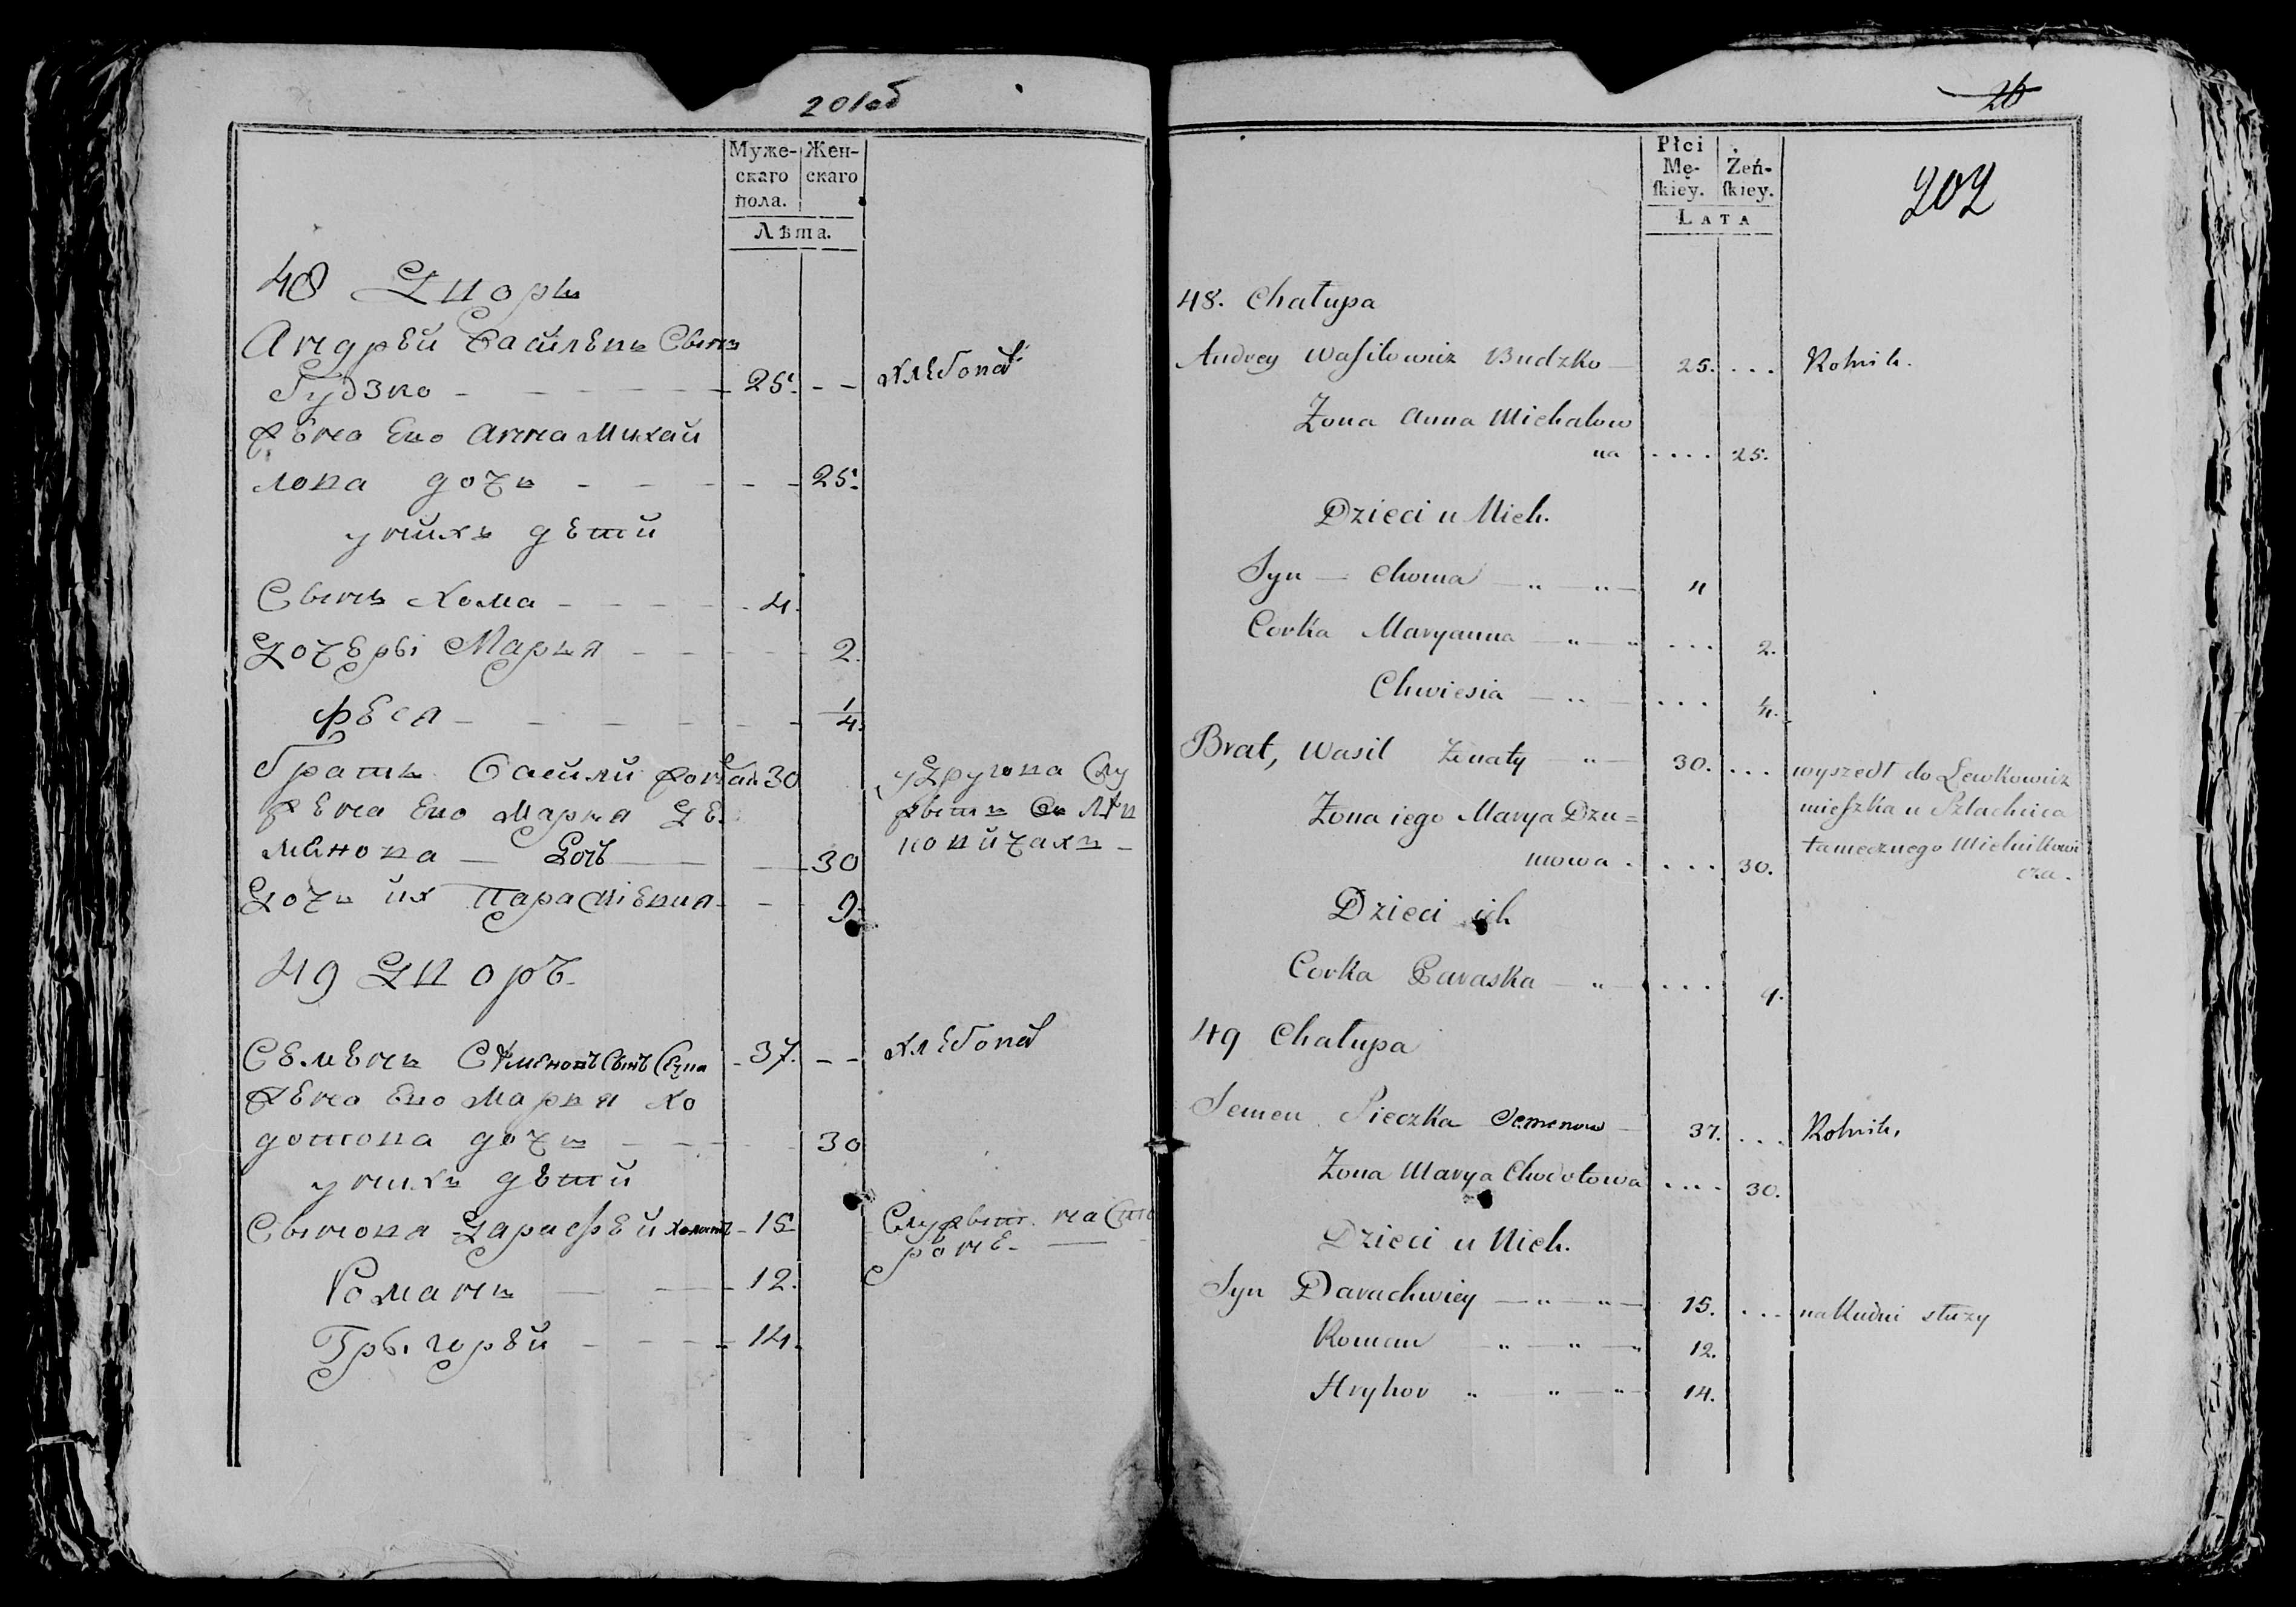 201об
Муже- Жен-
скаго скаго
пола.
Лѣта.
48 Дворъ
Андрей Василевъ Сынъ
Будзко - - - 25. - - хлебопа
Жена Его Анна Михай
лова дочь - - - 25.
у нихъ дѣти
Сынъ Хома - - - 4.
Дочери Марья - - - 2.
Феся - - - 1/4.
Братъ Василий женат 30 у Другова Слу
Жена Его Марья Де
жытъ Ле
манова — Дочь — 30 ковичахъ -
Дочь их Параскевия - - 9.
49 Дворъ.
Семенъ Семеновъ Сынъ - 37. - - хлебопа
Жена Его Марья Хо
дотова дочь - - - 30
у нихъ дѣти
Сыновя Дарафей холостъ - 15 Служыт. на Сто
роне. —
Романъ — - 12.
Грыгорей - - - 14.
26
Płci
Mę- Żeń-
skiey. skiey.
Lata
202
48. Chałupa
Andrey Wasilowicz Budzko — 25. ... Rolnik.
Żona Anna Michałow
na .... 25.
Dzieci u Nich.
Syn — Choma — „ — „ — 4
Corka Maryanna — „ — „ ... 2.
Chwiesia — „ — ... 4.
Brat, Wasil Żonaty — „ — 30. ... wyszedł do Lewkowicz
Żona iego Marya Dzu= mieszka u Szlachcica
tamecznego Mielnikowi
mowa . .... 30. cza.
Dzieci ich
Corka Paraska — „ — ... 9.
49 Chałupa
Semen Pieczka Semenow — 37. ... Rolnik.
Żona Marya Chodotowa .... 30.
Dzieci u Nich.
Syn Darachwiey — „ — „ — 15. ... na Rudni służy
Roman — „ — „ — „ 12.
Hryhor „ — „ — „ — 14.